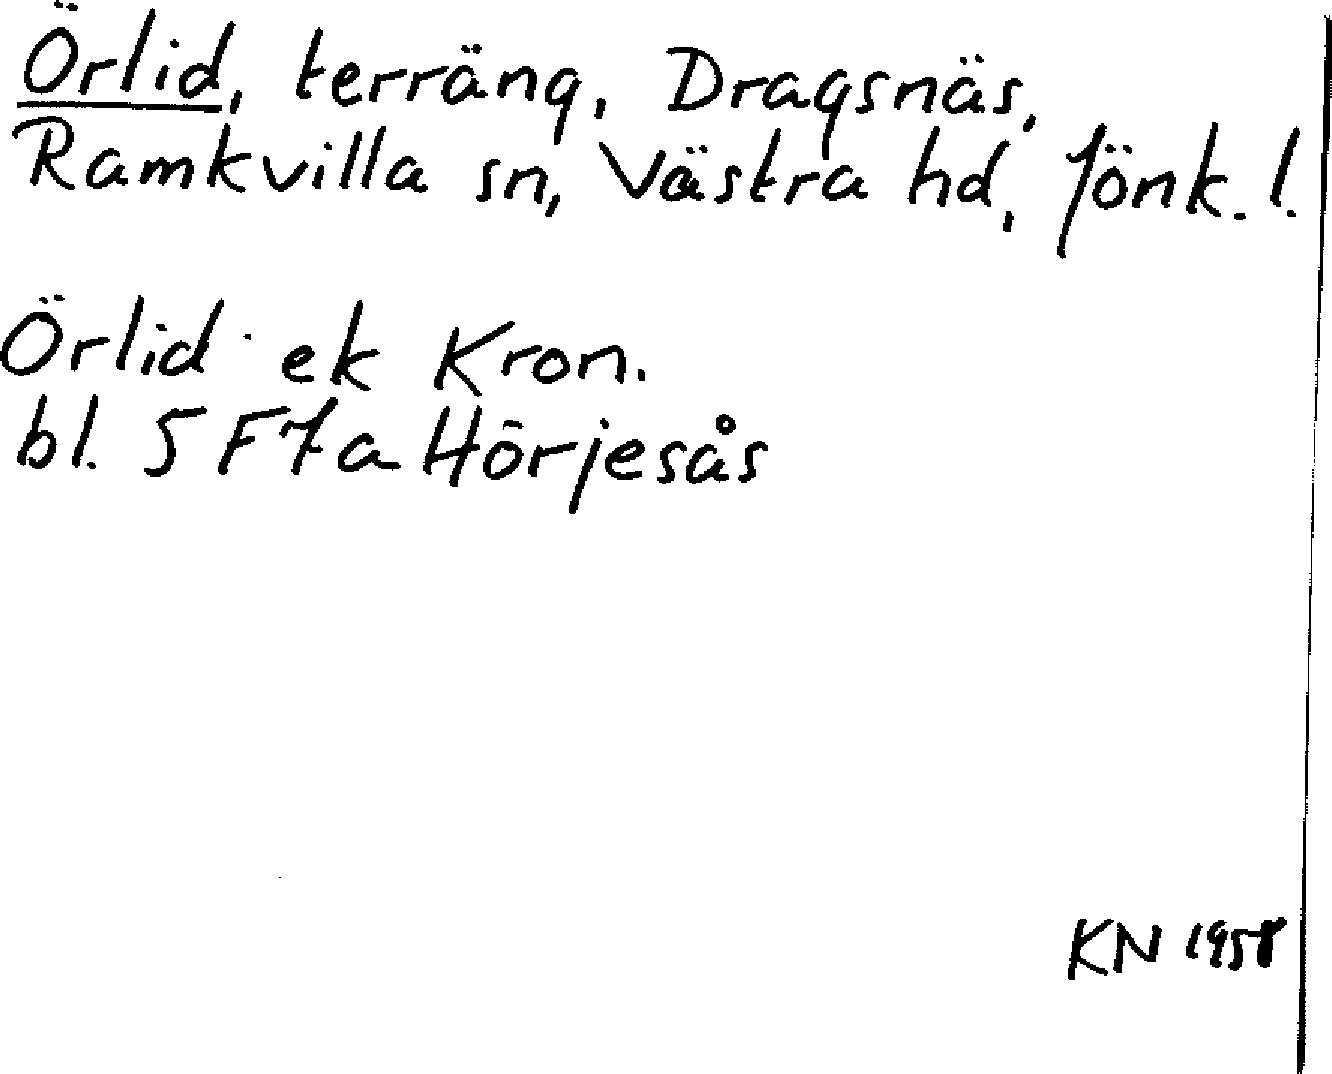 Örlid, terräng, Dragsnäs,
Ramkvilla sn, Västra hd, Jönk. l.
Örlid ek Kron.
bl. 5 F 7 a Hörjesås
KN 1958